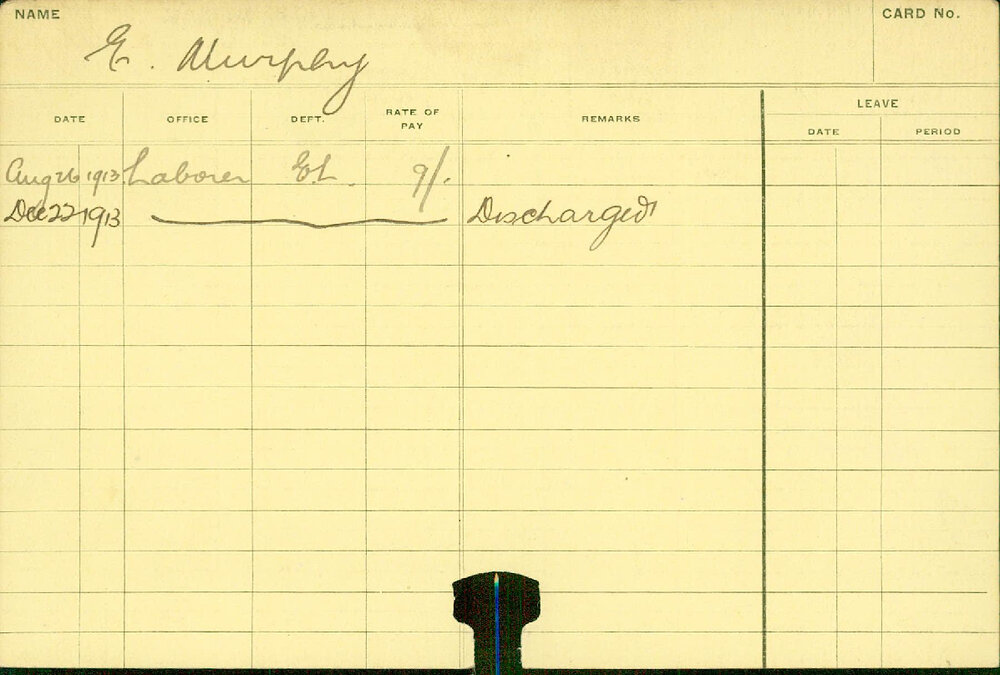 NAME
CARD No.
E. Murphy
DATE OFFICE DEPT. RATE OF PAY REMARKS LEAVE
DATE PERIOD
Aug 26 1913 Laborer E.L. 9/-
Dec 22 1913 Discharged